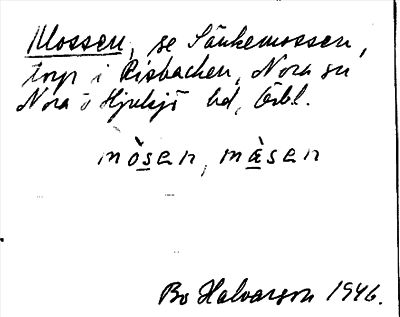 Mossen, se Sänkemossen,
torp i Risbacken, Nora sn
Nora o Hjulsjö bd, Örbl.
mòsen, màsen
Bo Halvarson 1946.